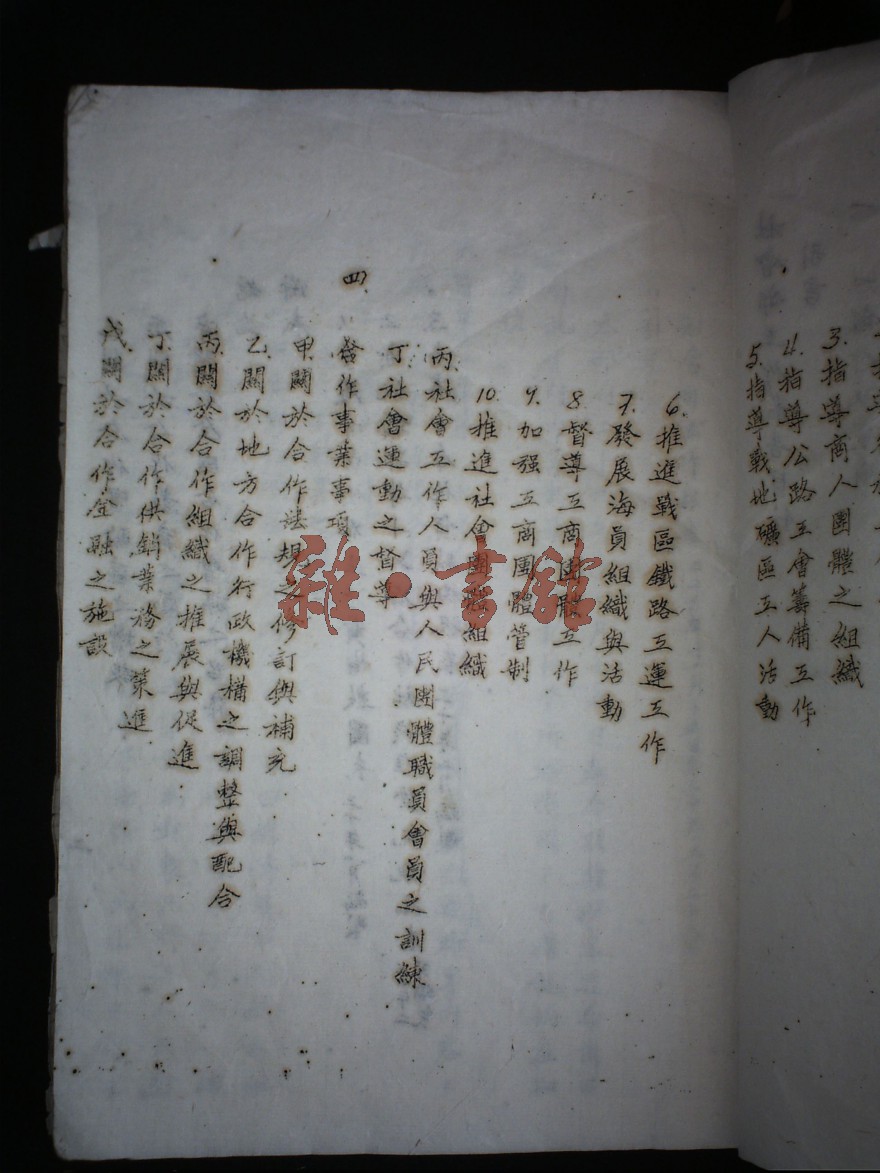 3.指導商人團體之組織
4.指導公路工會籌備工作
5.指導戰地礦區工人活動
6.推進戰區鐵路工運工作
7.發展海員組織與活動
8督導工商團體工作
9.加强工商團體管制
10.推進社會團體組織
丙.社會工作人員與人民團體職員會員之訓練
丁.社會運動之督導
四.合作事業事項
甲.關於合作法規之修訂與補充
乙.關於地方合作行政機構之調整與配合
丙.關於合作組織之推展與促進
丁.關於合作供銷業務之策進
戊.關於合作金融之施設
雜·書館